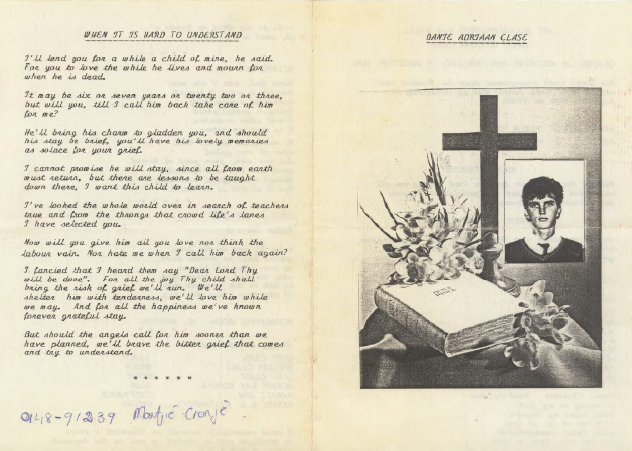 WHEN IT IS HARD TO UNDERSTAND
I'll lend you for a while a child of mine, he said.
For you to love the while he lives and mourn for
when he is dead.
It may be six or seven years or twenty two or three,
but will you, till I call him back take care of him
for me?
He'll bring his charm to gladden you, and should
his stay be brief, you'll have his lovely memories
as solace for your grief.
I cannot promise he will stay, since all from earth
must return, but there are lessons to be taught
down there, I want this child to learn.
I've looked the whole world over in search of teachers
true and from the throngs that crowd life's lanes
I have selected you.
Now will you give him all you love nor think the
labour vain. Nor hate me when I call him back again?
I fancied that I heard them say "Dear Lord Thy
will be done". For all the joy Thy child shall
bring the risk of grief we'll run. We'll
shelter him with tenderness, we'll love him while
we may. And for all the happiness we've known
forever grateful stay.
But should the angels call for him sooner than we
have planned, we'll brave the bitter grief that comes
and try to understand.
* * * * * *
0148-91239 Martjie Cronjé
DANIE ADRIAAN CLASE
HOLY